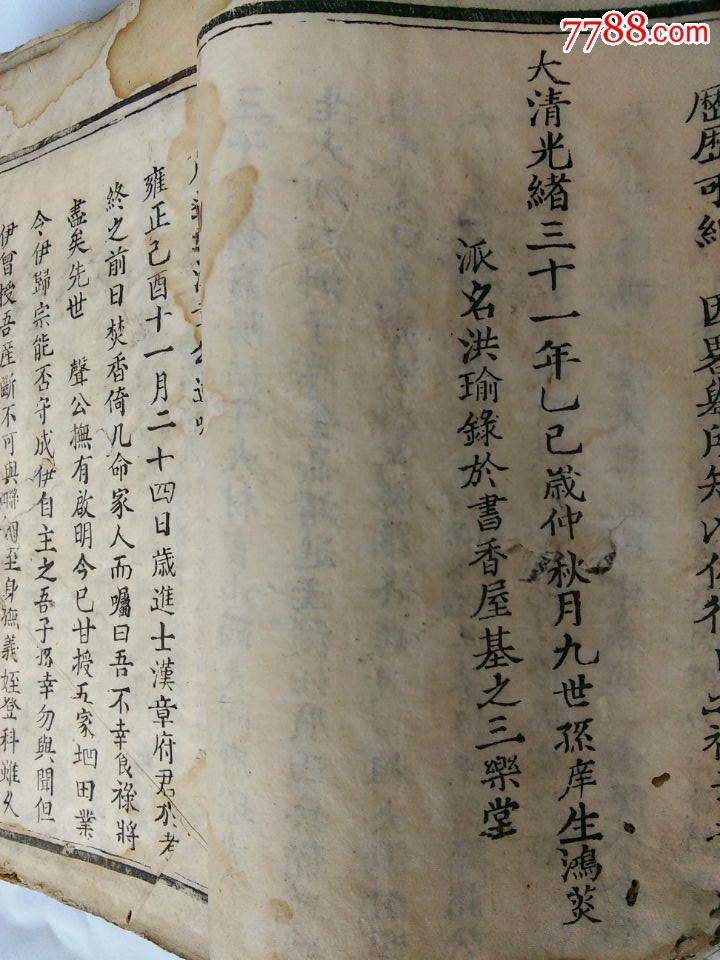 7788.com
歷歷可
大清光緒三十一年乙巳歲仲秋月九世孫庠生鴻荧
派名洪瑜錄於書香屋基之三樂堂
雍正己酉十一月二十四日歲進士漢章府君於老
終之前日焚香倚几命家人而囑曰吾不幸食祿將
盡矣先世 聲公撫有啟明今已甘授五家地田業
令伊歸宗能否守成伊自主之吾子孫幸勿與聞但
伊曾授吾產斷不可與聯姻至身撫義姪登科雖久